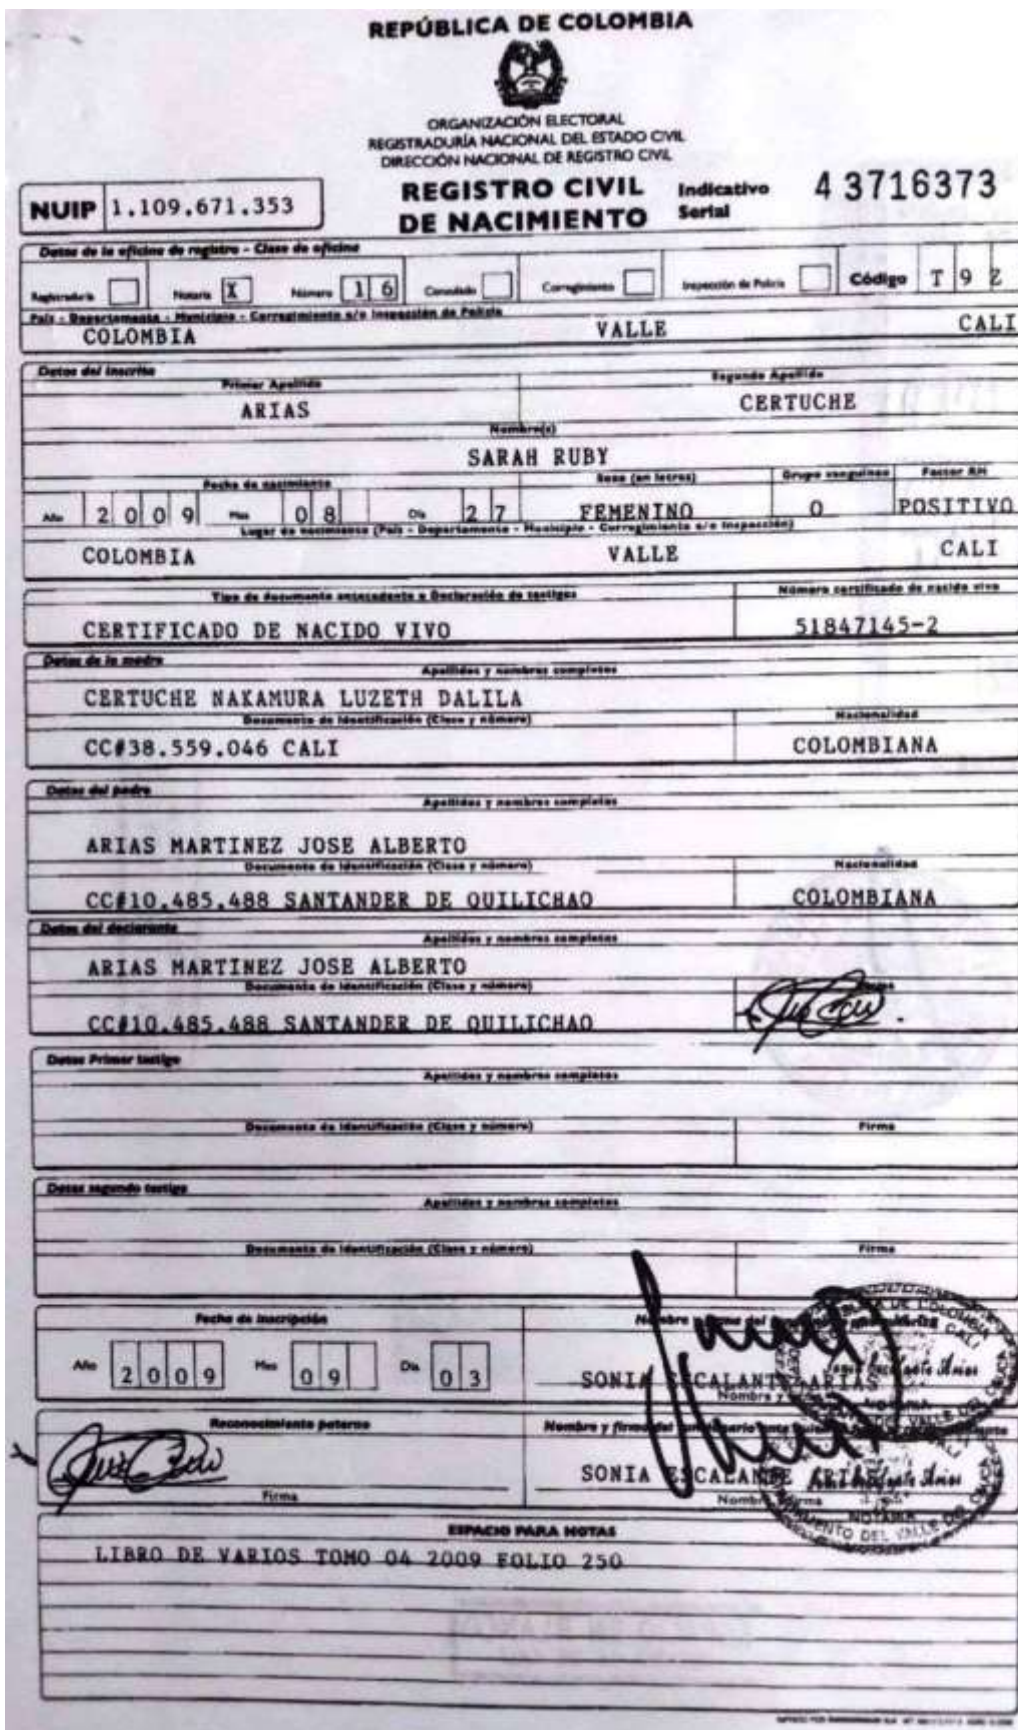 REPÚBLICA DE COLOMBIA
ORGANIZACIÓN ELECTORAL
REGISTRADURÍA NACIONAL DEL ESTADO CIVIL
DIRECCIÓN NACIONAL DE REGISTRO CIVIL
NUIP 1.109.671.353
REGISTRO CIVIL DE NACIMIENTO
Indicativo Serial 4 3716373
Datos de la oficina de registro - Clase de oficina
Registraduría Notaría X Número 1 6 Consulado Corregimiento Inspección de Policía Código T 9 Z
País - Departamento - Municipio - Corregimiento e/o Inspección de Policía
COLOMBIA VALLE CALI
Datos del inscrito
Primer Apellido Segundo Apellido
ARIAS CERTUCHE
Nombre(s)
SARAH RUBY
Fecha de nacimiento Sexo (en letras) Grupo sanguíneo Factor RH
Año 2 0 0 9 Mes 0 8 Día 2 7 FEMENINO O POSITIVO
Lugar de nacimiento (País - Departamento - Municipio - Corregimiento e/o Inspección)
COLOMBIA VALLE CALI
Tipo de documento antecedente o Declaración de testigos Número certificado de nacido vivo
CERTIFICADO DE NACIDO VIVO 51847145-2
Datos de la madre
Apellidos y nombres completos
CERTUCHE NAKAMURA LUZETH DALILA
Documento de identificación (Clase y número) Nacionalidad
CC#38.559.046 CALI COLOMBIANA
Datos del padre
Apellidos y nombres completos
ARIAS MARTINEZ JOSE ALBERTO
Documento de identificación (Clase y número) Nacionalidad
CC#10.485.488 SANTANDER DE QUILICHAO COLOMBIANA
Datos del declarante
Apellidos y nombres completos
ARIAS MARTINEZ JOSE ALBERTO
Documento de identificación (Clase y número)
CC#10.485.488 SANTANDER DE QUILICHAO
Datos Primer testigo
Apellidos y nombres completos
Documento de identificación (Clase y número) Firma
Datos segundo testigo
Apellidos y nombres completos
Documento de identificación (Clase y número) Firma
Fecha de inscripción Nombre y firma del
Año 2 0 0 9 Mes 0 9 Día 0 3
SONIA ESCALANTE ARIAS
Nombre y
Reconocimiento paterno Nombre y firma del
SONIA ESCALANTE
Firma Nombre y firma
ESPACIO PARA NOTAS
LIBRO DE VARIOS TOMO 04 2009 FOLIO 250